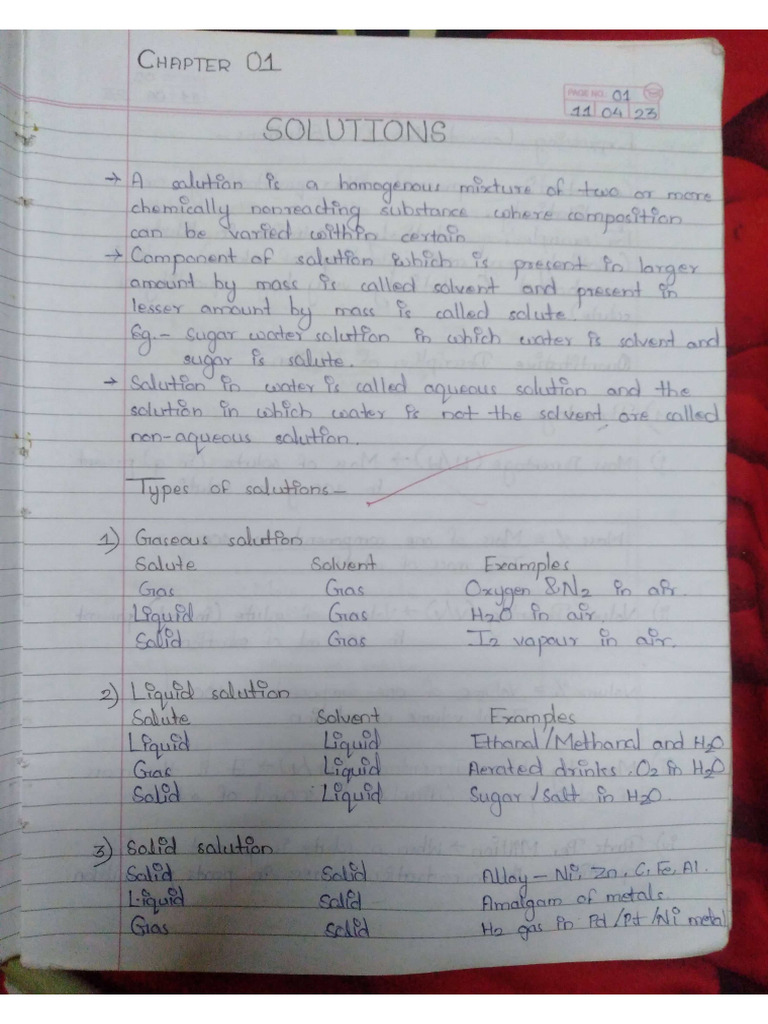 CHAPTER 01
PAGE NO. 01
11 04 23
SOLUTIONS
→ A solution is a homogenous mixture of two or more
chemically nonreacting substance where composition
can be varied within certain
→ Component of solution which is present in larger
amount by mass is called solvent and present in
lesser amount by mass is called solute.
Eg.- Sugar water solution in which water is solvent and
sugar is solute.
→ Solution in water is called aqueous solution and the
solution in which water is not the solvent are called
non-aqueous solution.
Types of solutions-
1) Gaseous solution
Solute Solvent Examples
Gas Gas Oxygen & N2 in air.
Liquid Gas H2O in air.
Solid Gas I2 vapour in air.
2) Liquid solution
Solute Solvent Examples
Liquid Liquid Ethanol/Methanol and H2O
Gas Liquid Aerated drinks, O2 in H2O
Solid Liquid Sugar/Salt in H2O.
3) Solid solution
Solid Solid Alloy - Ni, Zn, C, Fe, Al.
Liquid Solid Amalgam of metals.
Gas Solid H2 gas in Pd/Pt/Ni metal